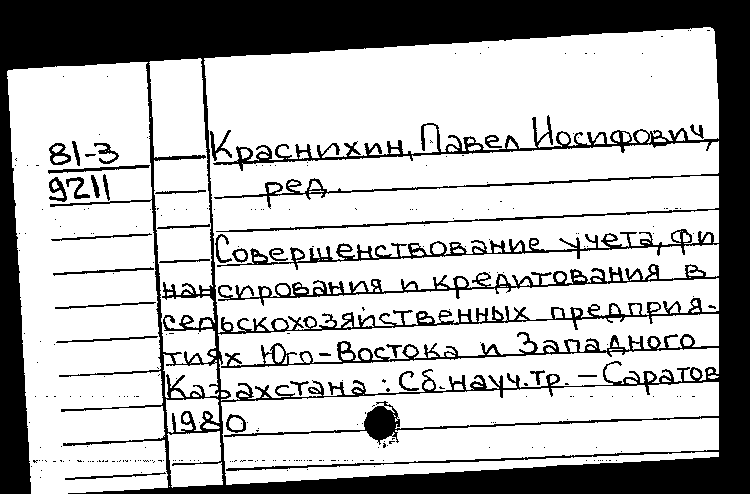 81-3
9211
Краснихин, Павел Иосифович,
ред.
Совершенствование учета, фи
нансирования и кредитования в
сельскохозяйственных предприя-
тиях Юго-Востока и Западного
Казахстана : Сб. науч. тр. – Саратов
1980